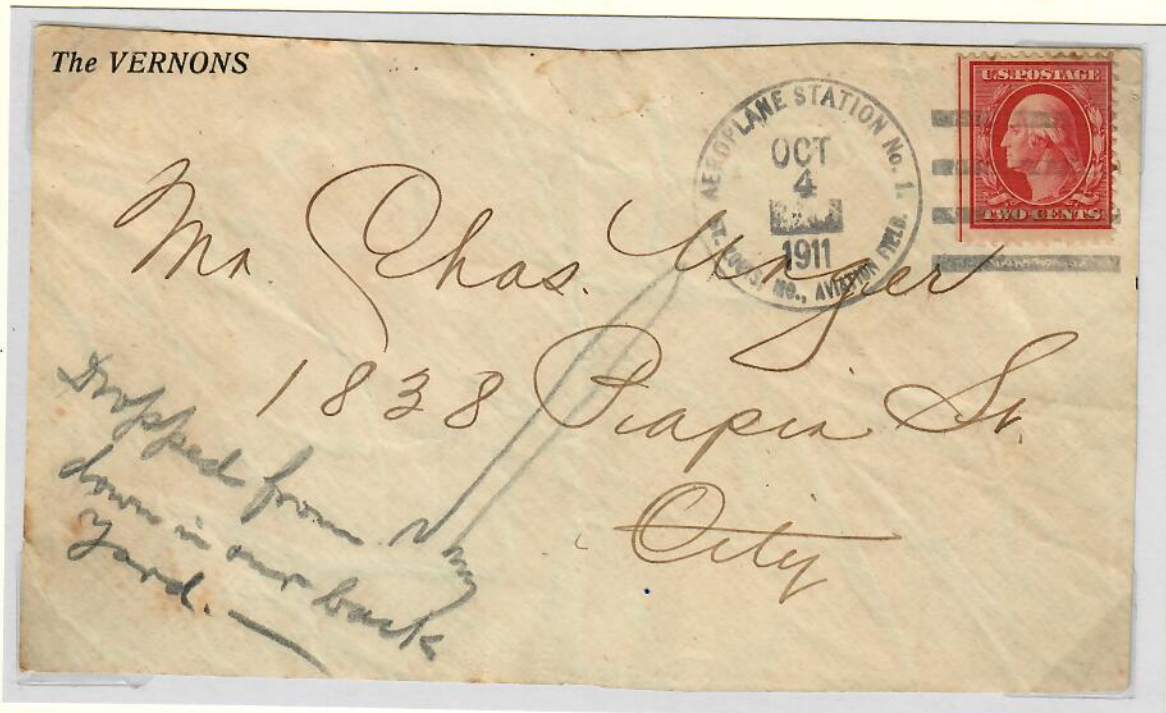 The VERNONS
AEROPLANE STATION No. 1.
OCT
4
1911
ST. LOUIS, MO., AVIATION FIELD.
U.S. POSTAGE
TWO CENTS
Mr Chas. Unger
1838 Papin St.
City
Dropped from
down in our back
Yard.